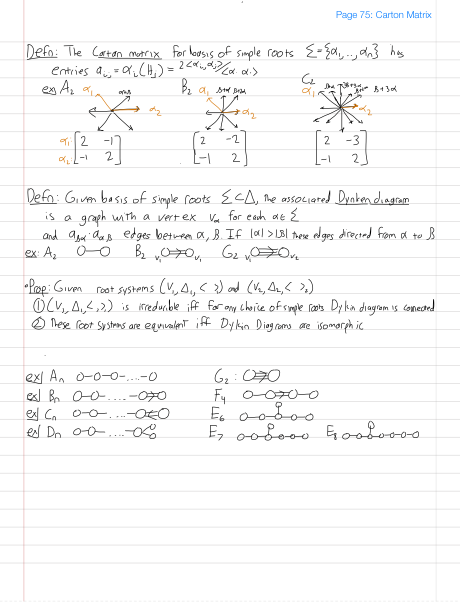 Page 75: Carton Matrix
Defn: The Cartan matrix for basis of simple roots Σ={α₁,..,αₙ} has
entries aᵢ,ⱼ = αᵢ(Hⱼ) = 2<αᵢ,αⱼ>/<α. α.>
ex/ A₂ α₁ α+β α₂ B₂ α₁ β+α α₂ G₂ α₁ β+3α α₂
α₁ [2 -1] [2 -2] [2 -3]
α₂ [-1 2] [-1 2] [-1 2]
Defn: Given basis of simple roots Σ⊂Δ, the associated Dynken diagram
is a graph with a vertex vα for each α∈Σ
and aβα·aαβ edges between α, β. If |α|>|β| these edges directed from α to β
ex: A₂ B₂ v₁ v₂ G₂ v₁ v₂
•Prop: Given root systems (V₁,Δ₁,< >) and (V₂,Δ₂,< >₂)
① (V₁,Δ₁,<,>) is irreducible iff for any choice of simple roots Dykin diagram is connected
② These root systems are equivalent iff Dykin Diagrams are isomorphic
ex/ Aₙ G₂:
ex/ Bₙ F₄
ex/ Cₙ E₆
ex/ Dₙ E₇ E₈